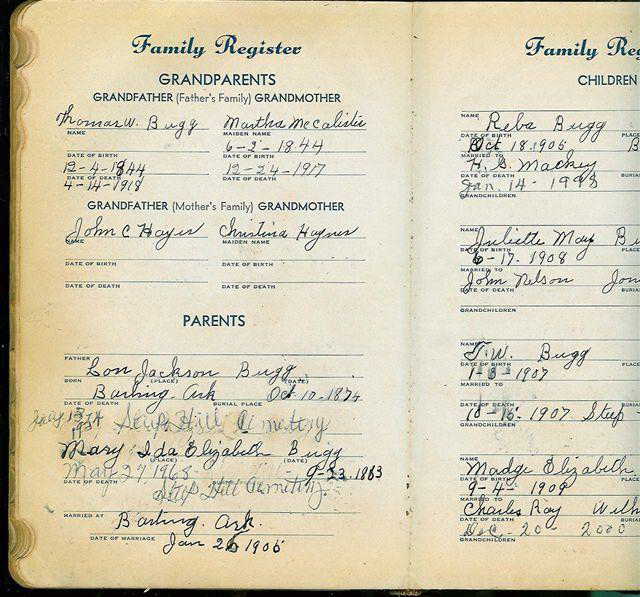 Family Register
GRANDPARENTS
GRANDFATHER (Father's Family) GRANDMOTHER
Thomas W. Bugg Martha McCalister
NAME MAIDEN NAME
6-2-1844
DATE OF BIRTH DATE OF BIRTH
12-4-1844 12-24-1917
DATE OF DEATH DATE OF DEATH
4-14-1918
GRANDFATHER (Mother's Family) GRANDMOTHER
John C Hayes Christina Haynes
NAME MAIDEN NAME
DATE OF BIRTH DATE OF BIRTH
DATE OF DEATH DATE OF DEATH
PARENTS
FATHER
Lon Jackson Bugg
BORN (PLACE) (DATE)
Barling Ark Oct 10-1874
DATE OF DEATH BURIAL PLACE
Steep Hill Cemetery
Mary Ida Elizabeth Bugg
(PLACE) (DATE)
May 27, 1968 9-23, 1883
DATE OF DEATH
Steep Hill Cemetery
MARRIED AT
Barling. Ark.
DATE OF MARRIAGE
Jan 26 1905
Family Reg
CHILDREN
NAME
Reba Bugg
DATE OF BIRTH PLACE
Oct 18. 1905 B
MARRIED TO
H. S. Mackey
DATE OF DEATH BURIA
Jan. 14-1998
GRANDCHILDREN
NAME
Juliette May Bu
DATE OF BIRTH PLACE
6-17-1908
MARRIED TO
John Nelson Jon
DATE OF DEATH BURIA
GRANDCHILDREN
NAME
T. W. Bugg
DATE OF BIRTH PLACE
1-3-1907
MARRIED TO
10-16-1907 Steep
DATE OF DEATH BURIA
GRANDCHILDREN
NAME
Madge Elizabeth
DATE OF BIRTH PLACE
9-4-1909
MARRIED TO
Charles Ray Wilh
DATE OF DEATH BURIA
Dec-20-2000
GRANDCHILDREN